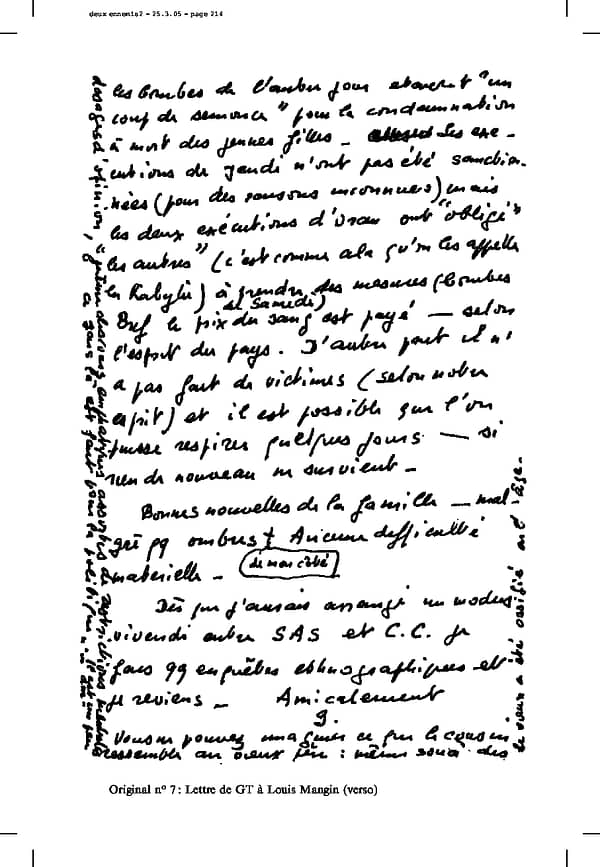 deux ennemis2 - 25.3.05 - page 214
les bombes de l'autre jour étaient "un
coup de semonce" pour la condamnation
à mort des jeunes filles - Les exé-
cutions de jeudi n'ont pas été sanction-
nées (pour des raisons inconnues) mais
les deux exécutions d'Oran ont "obligé"
les autres" (c'est comme cela qu'on les appelle
en Kabylie) à prendre des mesures (bombes
de Samedi)
Bref le prix du sang est payé — selon
l'esprit du pays. D'autre part il n'
a pas fait de victimes (selon notre
esprit) et il est possible que l'on
puisse respirer quelques jours — si
rien de nouveau ne survient -
Bonnes nouvelles de la famille — mal-
gré qq ombres + Aucune difficulté
matérielle - (de mon côté)
Dès que j'aurais arrangé un modus
vivendi entre SAS et C.C. je
fais qq enquêtes ethnographiques et
je reviens - Amicalement
g.
Vous pouvez imaginer ce que le cousin
ressemble au vieux : même souci des
le vieux a été ossifié par l'âge.
Original nº 7 : Lettre de GT à Louis Mangin (verso)